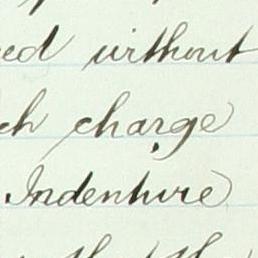 ed without
ch charge
Indenture